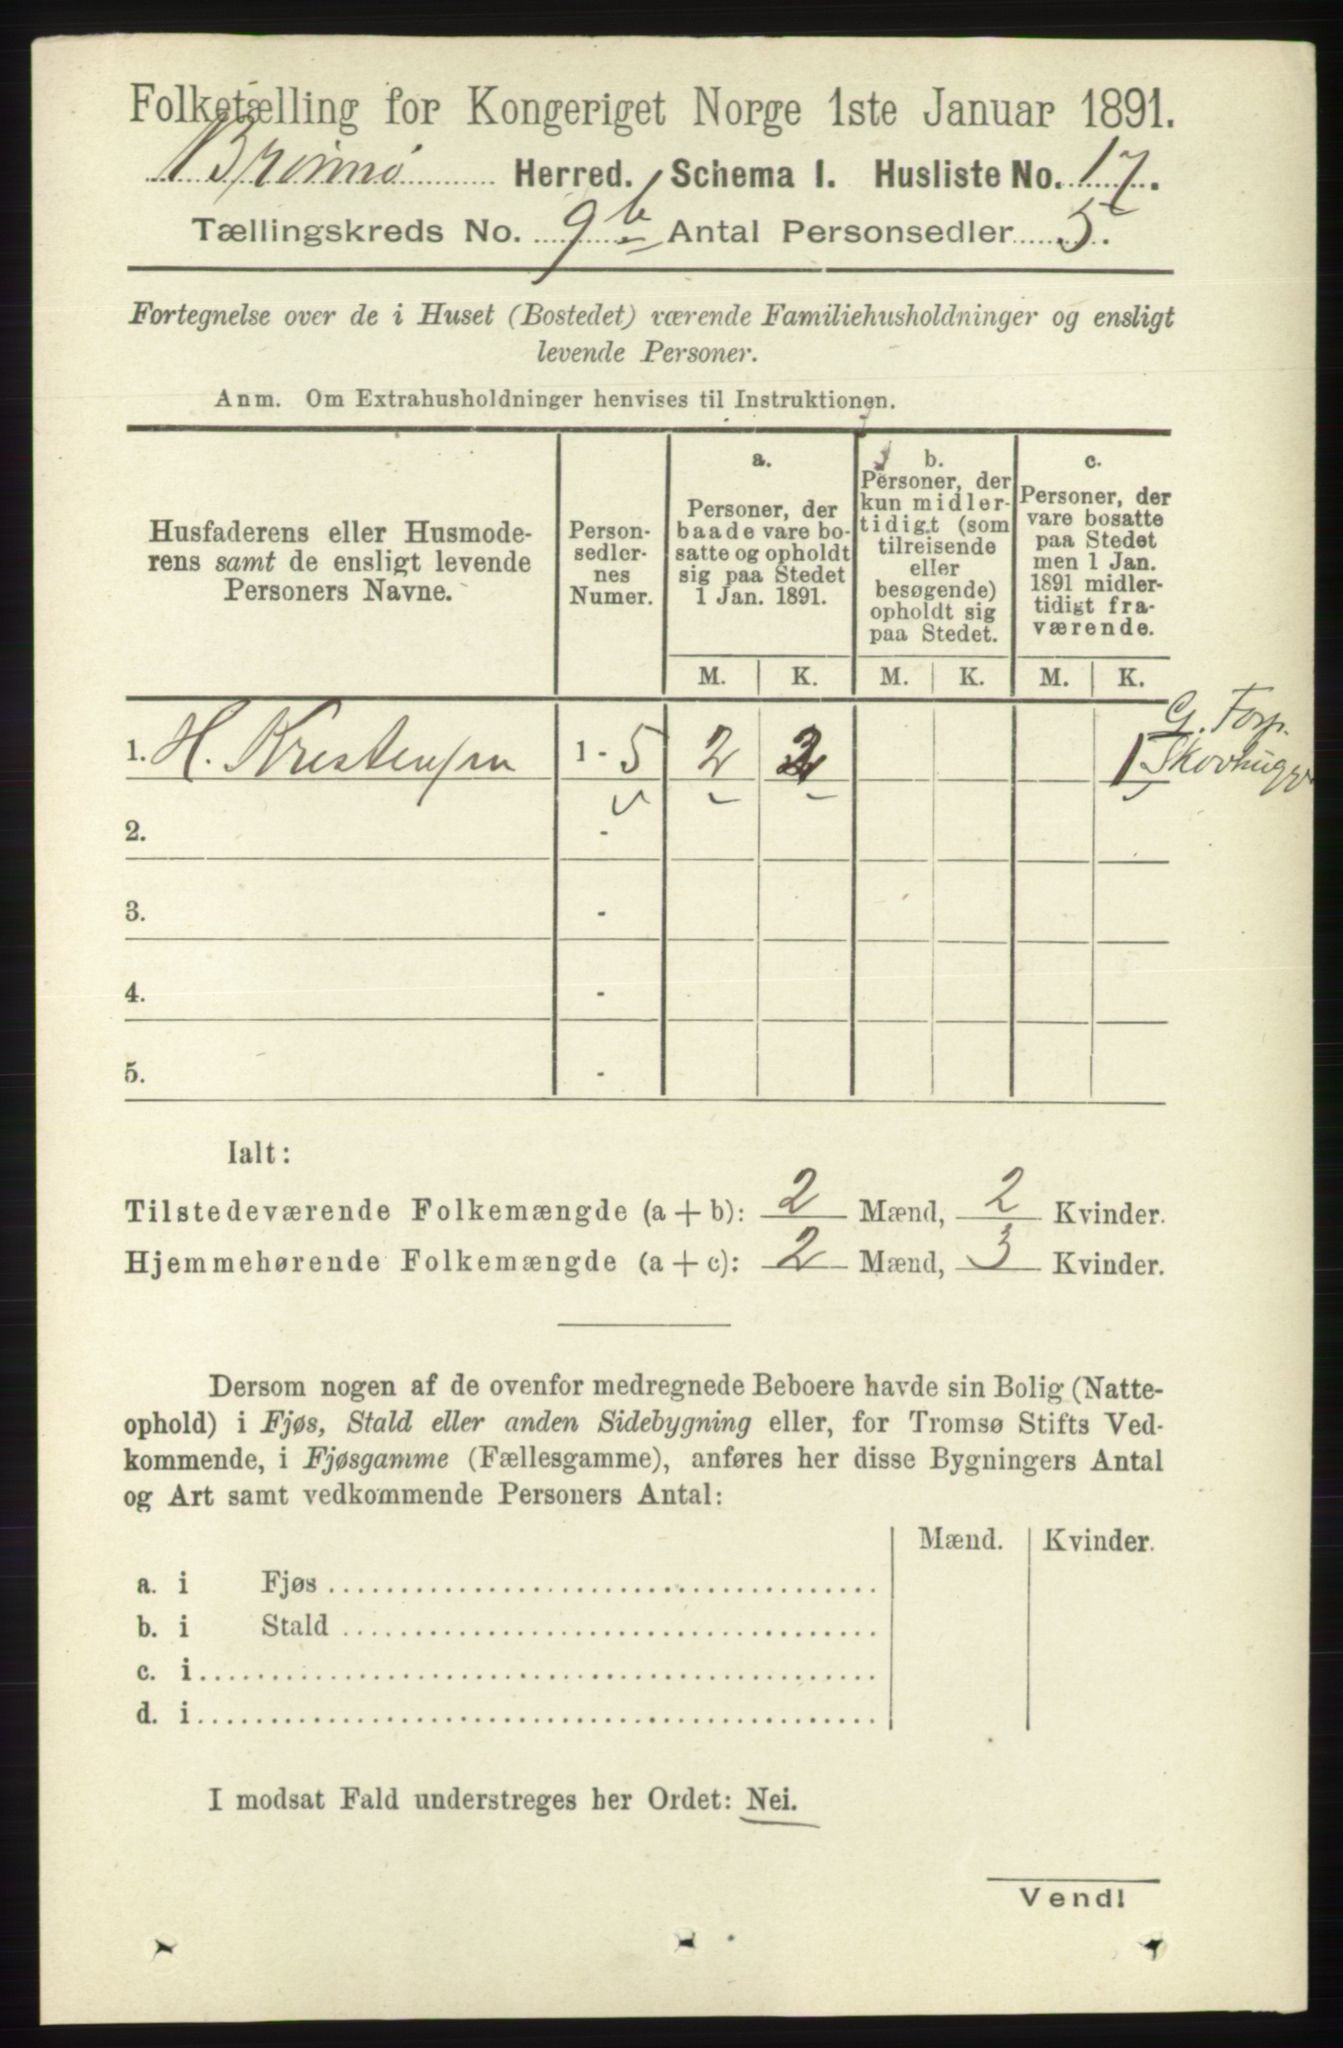 Folketælling for Kongeriget Norge 1ste Januar 1891.
Brønnø Herred. Schema I. Husliste No. 17.
Tællingskreds No. 9 b Antal Personsedler 5.
Fortegnelse over de i Huset (Bostedet) værende Familiehusholdninger og ensligt
levende Personer.
Anm. Om Extrahusholdninger henvises til Instruktionen.
Husfaderens eller Husmode-
rens samt de ensligt levende
Personers Navne.
Person-
sedler-
nes
Numer.
a.
Personer, der
baade vare bo-
satte og opholdt
sig paa Stedet
1 Jan. 1891.
b.
Personer, der
kun midler-
tidigt (som
tilreisende
eller
besøgende)
opholdt sig
paa Stedet.
c.
Personer, der
vare bosatte
paa Stedet
men 1 Jan.
1891 midler-
tidigt fra-
værende.
M. K. M. K. M. K.
1. H. Kristensen 1 - 5 2 2 1
G. Torp.
2. -
3. -
4. -
5. -
Ialt:
Tilstedeværende Folkemængde (a + b): 2 Mænd, 2 Kvinder.
Hjemmehørende Folkemængde (a + c): 2 Mænd, 3 Kvinder.
Dersom nogen af de ovenfor medregnede Beboere havde sin Bolig (Natte-
ophold) i Fjøs, Stald eller anden Sidebygning eller, for Tromsø Stifts Ved-
kommende, i Fjøsgamme (Fællesgamme), anføres her disse Bygningers Antal
og Art samt vedkommende Personers Antal:
Mænd. Kvinder.
a. i Fjøs
b. i Stald
c. i
d. i
I modsat Fald understreges her Ordet: Nei.
Vend!